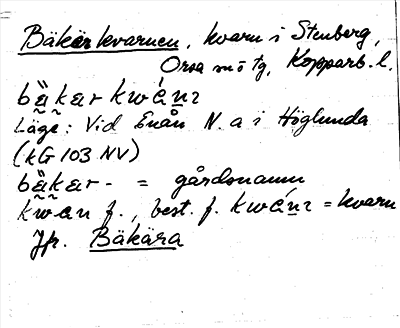 Bäkärkvarnen, kvarn i Stenberg,
Orsa sn ö tg, Kopparb. l.
bä̀kar kwánı
Läge: Vid Enån N. a i Höglunda
(kG 103 NV)
bä̀kar- = gårdsnamn
kwan f., best. f. kwánı = kvarn
Jfr. Bäkära